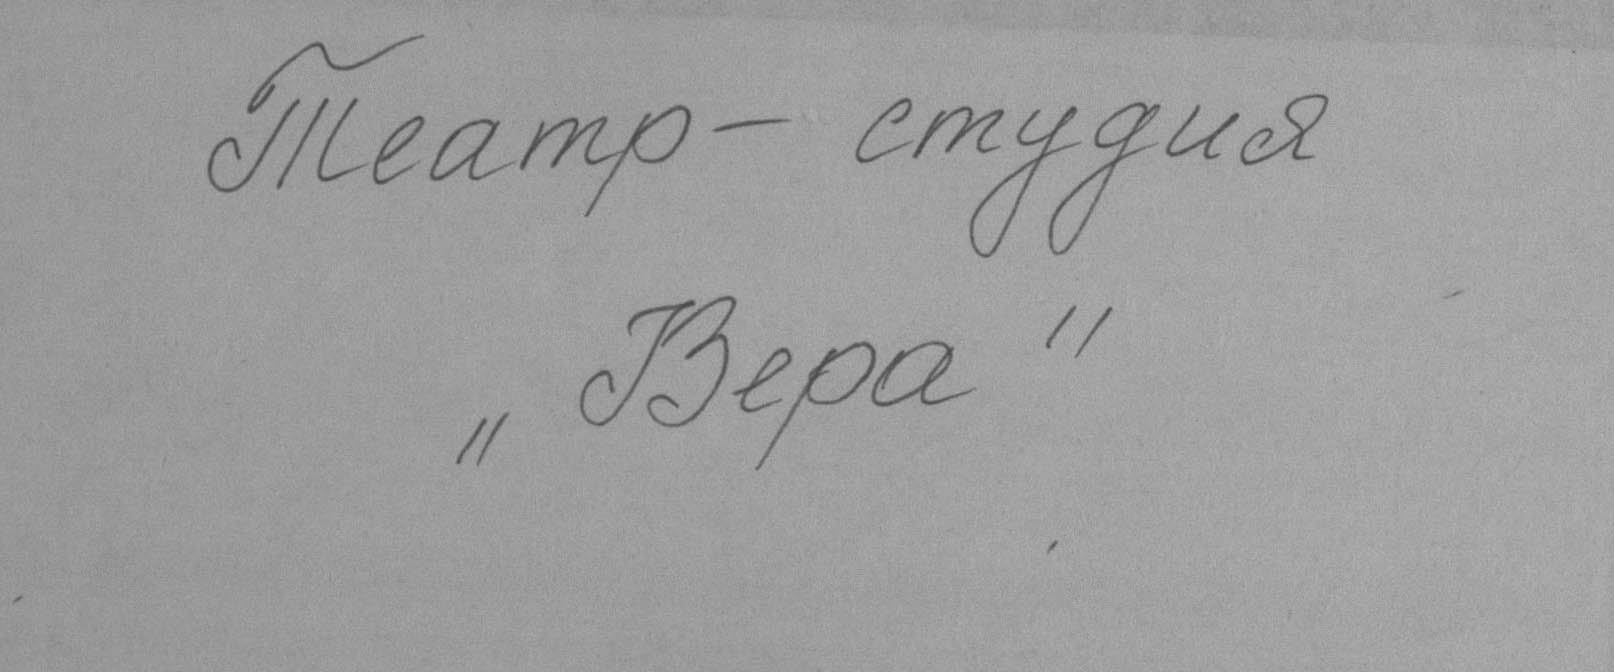 Театр – студия
„Вера"